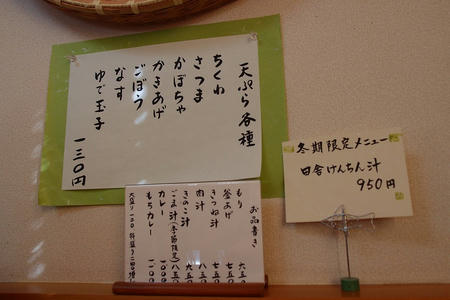 天ぷら各種
ちくわ
さつま
かぼちゃ
かきあげ
ごぼう
なす
ゆで玉子
一三〇円
冬期限定メニュー
田舎けんちん汁
950円
お品書き
もり 六五〇
釜あげ 七五〇
きつね汁 七五〇
肉汁 八五〇
きのこ汁 八五〇
ごま汁(季節限定) 八五〇
カレー 九五〇
もちカレー 一〇〇〇
大盛り一二〇